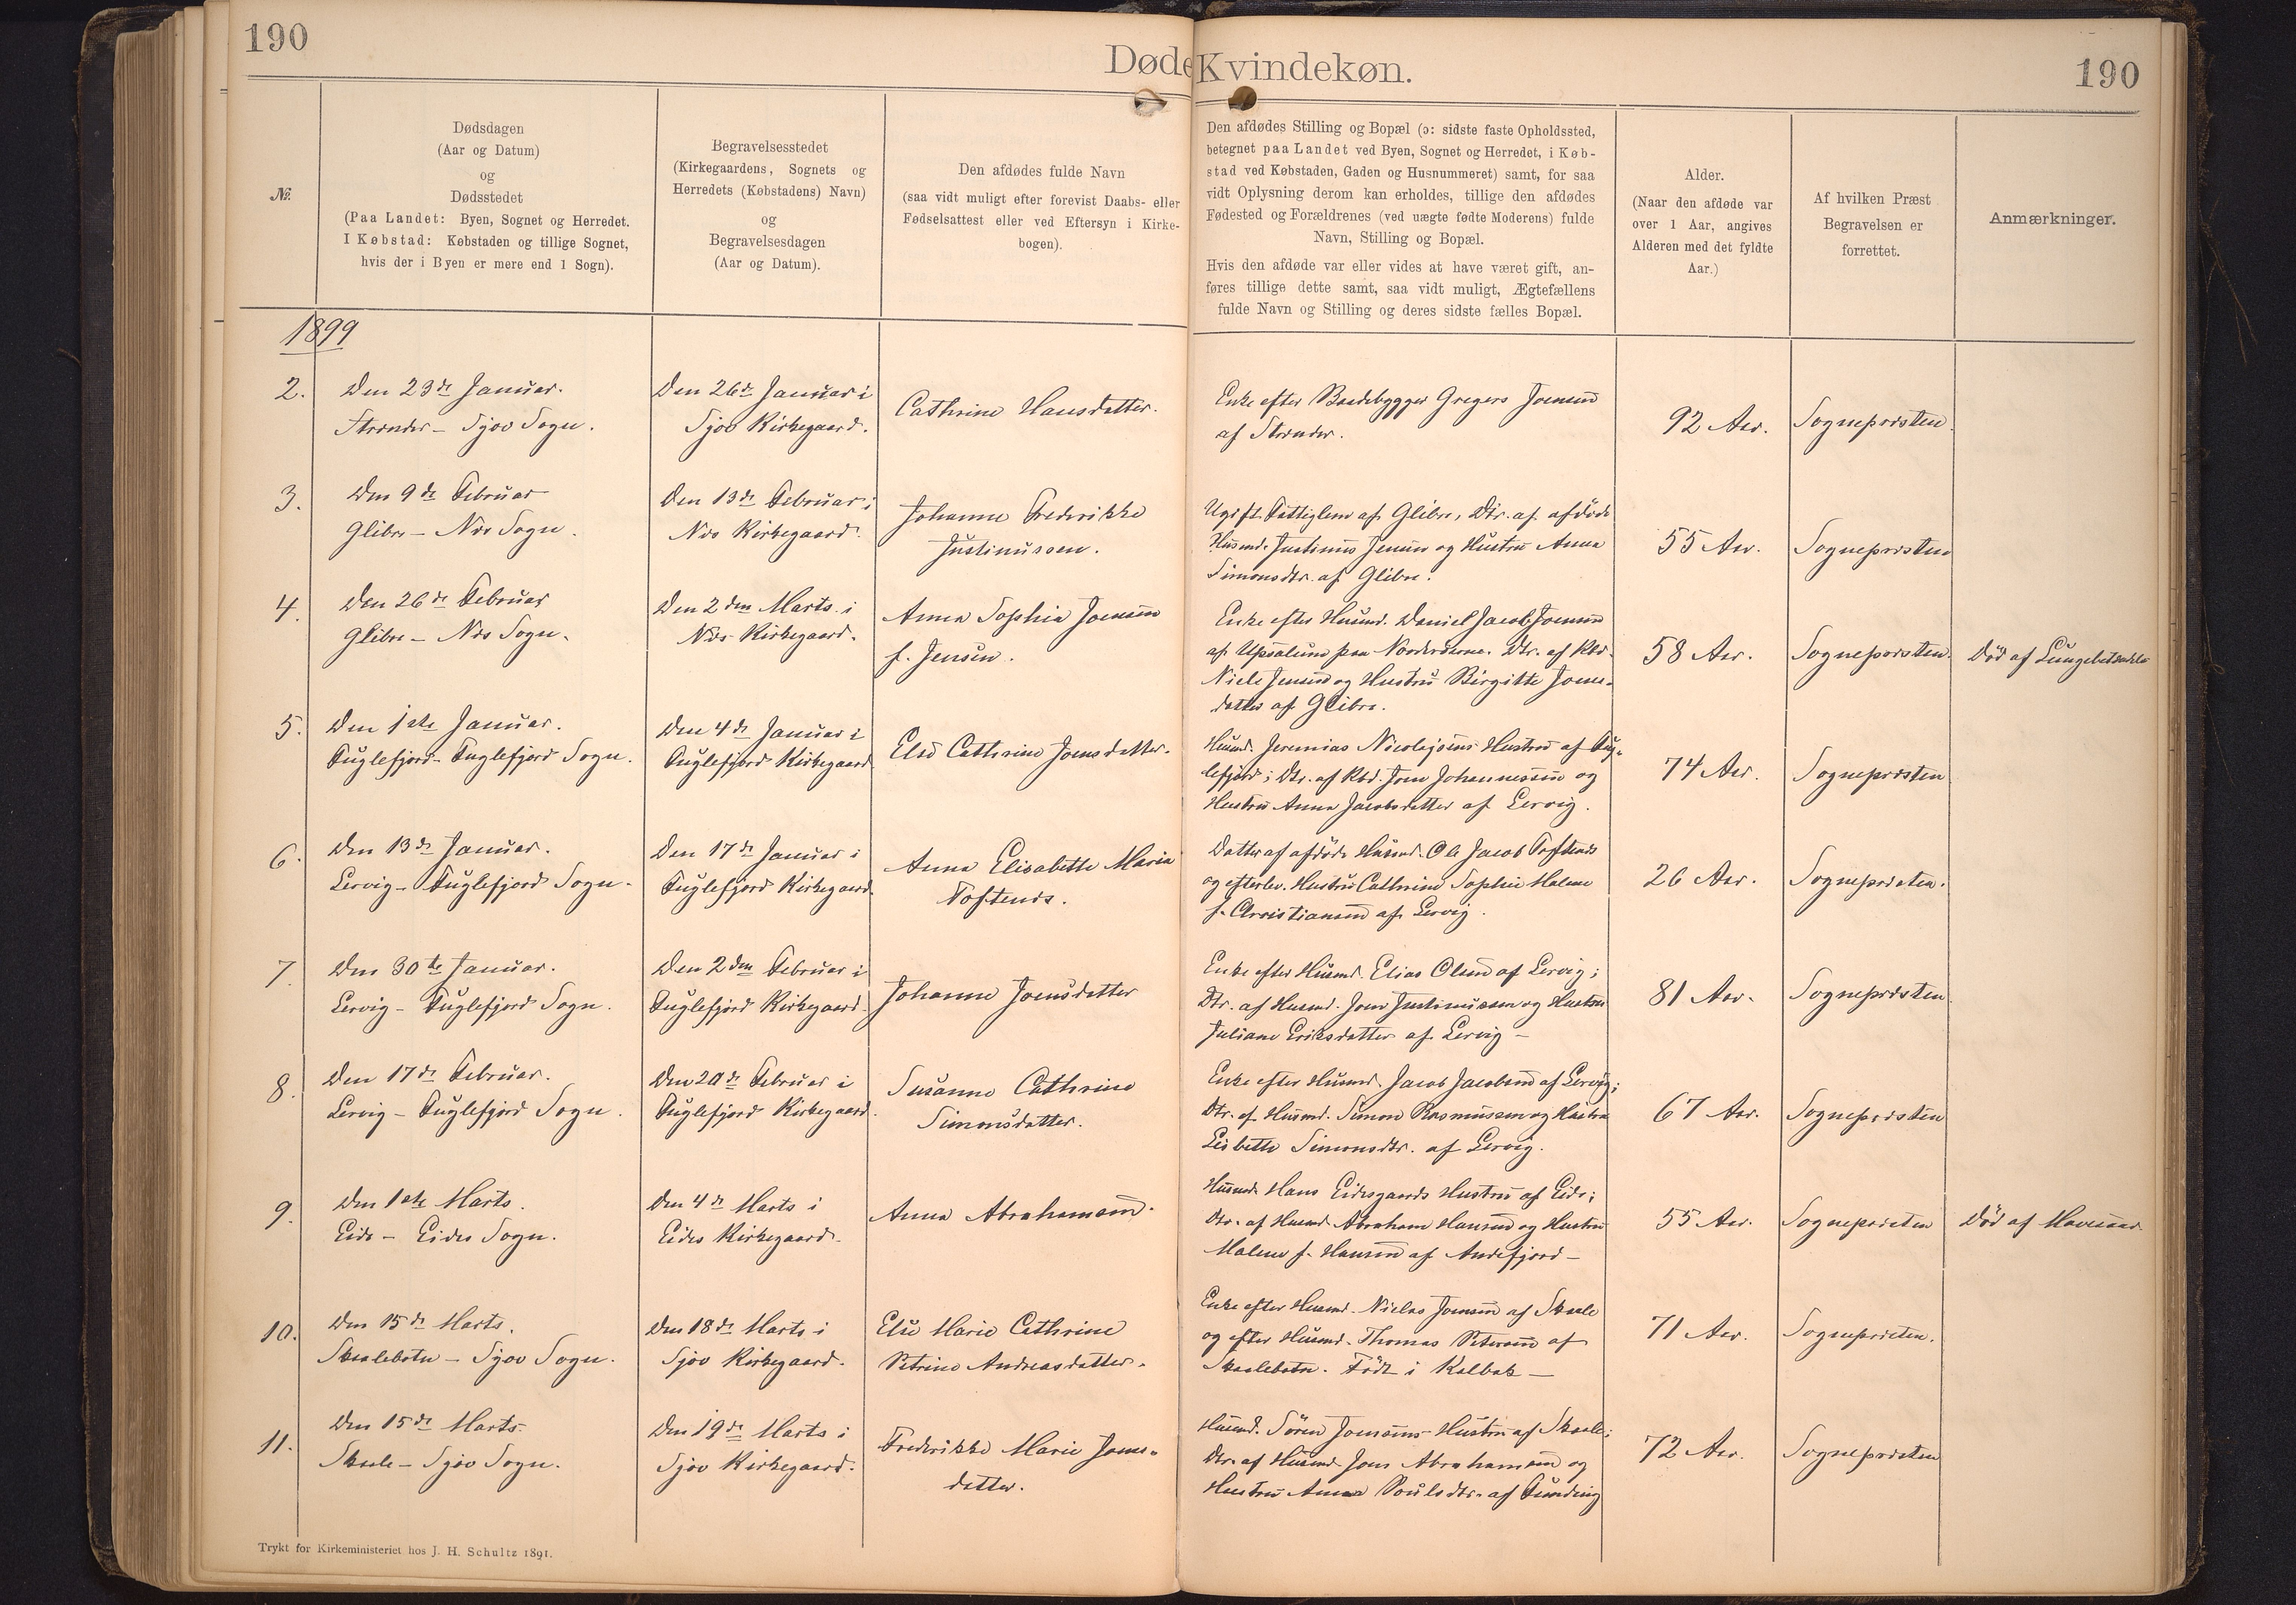 190
Døde Kvindekøn.
190
№.
Dødsdagen
(Aar og Datum)
og
Dødsstedet
(Paa Landet: Byen, Sognet og Herredet.
I Købstad: Købstaden og tillige Sognet,
hvis der i Byen er mere end 1 Sogn).
Begravelsesstedet
(Kirkegaardens, Sognets og
Herredets (Købstadens) Navn)
og
Begravelsesdagen
(Aar og Datum).
Den afdødes fulde Navn
(saa vidt muligt efter forevist Daabs- eller
Fødselsattest eller ved Eftersyn i Kirke-
bogen).
Den afdødes Stilling og Bopæl (ɔ: sidste faste Opholdssted,
betegnet paa Landet ved Byen, Sognet og Herredet, i Køb-
stad ved Købstaden, Gaden og Husnummeret) samt, for saa
vidt Oplysning derom kan erholdes, tillige den afdødes
Fødested og Forældrenes (ved uægte fødte Moderens) fulde
Navn, Stilling og Bopæl.
Hvis den afdøde var eller vides at have været gift, an-
føres tillige dette samt, saa vidt muligt, Ægtefællens
fulde Navn og Stilling og deres sidste fælles Bopæl.
Alder.
(Naar den afdøde var
over 1 Aar, angives
Alderen med det fyldte
Aar.)
Af hvilken Præst
Begravelsen er
forrettet.
Anmærkninger.
1899
2.
Den 23de Januar.
Strender - Sjov Sogn.
Den 26de Januar i
Sjov Kirkegaard.
Cathrine Hansdatter.
Enke efter Baadebygger Gregers Joensen
af Strender.
92 Aar.
Sognepræsten.
3.
Den 9de Februar
Glibre - Næs Sogn.
Den 13de Februar i
Næs Kirkegaard.
Johanne Frederikke
Justinussen.
Ugift Fattiglem af Glibre, Dtr. af afdøde
Husmd. Justinus Jensen og Hustru Anna
Simonsdtr. af Glibre.
55 Aar.
Sognepræsten
4.
Den 26de Februar
Glibre - Næs Sogn.
Den 2den Marts i
Næs Kirkegaard.
Anna Sophia Joensen
f. Jensen.
Enke efter Husmd. Daniel Jacob Joensen
af Upsalum paa Norderøerne. Dtr. af Kbd.
Niels Jensen og Hustru Birgitte Joens-
datter af Glibre.
58 Aar.
Sognepræsten.
Død af Lungebetændelse
5.
Den 1ste Januar.
Fuglefjord - Fuglefjord Sogn.
Den 4de Januar i
Fuglefjord Kirkegaard
Else Cathrine Joensdatter.
Husmd. Jeremias Nicolajsens Hustru af Fug-
lefjord; Dtr. af Kbd. Joen Johannessen og
Hustru Anna Jacobsdatter af Lervig.
74 Aar.
Sognepræsten
6.
Den 13de Januar.
Lervig - Fuglefjord Sogn.
Den 17de Januar i
Fuglefjord Kirkegaard.
Anna Elisabeth Maria
Toftends.
Datter af afdøde Husmd. Ole Jacob Toftends
og efterlev. Hustru Cathrine Sophie Malene
f. Christiansen af Lervig.
26 Aar.
Sognepræsten.
7.
Den 30te Januar.
Lervig - Fuglefjord Sogn.
Den 2den Februar i
Fuglefjord Kirkegaard.
Johanne Joensdatter
Enke efter Husmd. Elias Olsen af Lervig;
Dtr. af Husmd. Joen Justinussen og Hustru
Juliane Eriksdatter af Lervig -
81 Aar.
Sognepræsten.
8.
Den 17de Februar.
Lervig - Fuglefjord Sogn.
Den 20de Februar i
Fuglefjord Kirkegaard.
Susanne Cathrine
Simonsdatter.
Enke efter Husmd. Jacob Jacobsen af Lervig;
Dtr. af Husmd. Simon Rasmussen og Hustru
Lisbeth Simonsdtr. af Lervig.
67 Aar.
Sognepræsten
9.
Den 1ste Marts.
Eide - Eides Sogn.
Den 4de Marts i
Eides Kirkegaard.
Anna Abrahamsen.
Husmd. Hans Eidesgaards Hustru af Eide;
Dtr. af Husmd. Abraham Hansen og Hustru
Malene f. Hansen af Andefjord -
55 Aar.
Sognepræsten
Død af Mavesaar
10.
Den 15de Marts.
Skaalebotn - Sjov Sogn.
Den 18de Marts i
Sjov Kirkegaard.
Else Marie Cathrine
Petrine Andreasdatter.
Enke efter Husmd. Niclas Joensen af Skaale
og efter Husmd. Thomas Petersen af
Skaalebotn. Født i Kalbak -
71 Aar.
Sognepræsten.
11.
Den 15de Marts.
Skaale - Sjov Sogn.
Den 19de Marts i
Sjov Kirkegaard.
Frederikke Marie Joens-
datter.
Husmd. Sören Joensens Hustru af Skaale;
Dtr. af Husmd. Joen Abrahamsen og
Hustru Anna Poulsdtr. af Funding
72 Aar.
Sognepræsten
Trykt for Kirkeministeriet hos J. H. Schultz 1891.